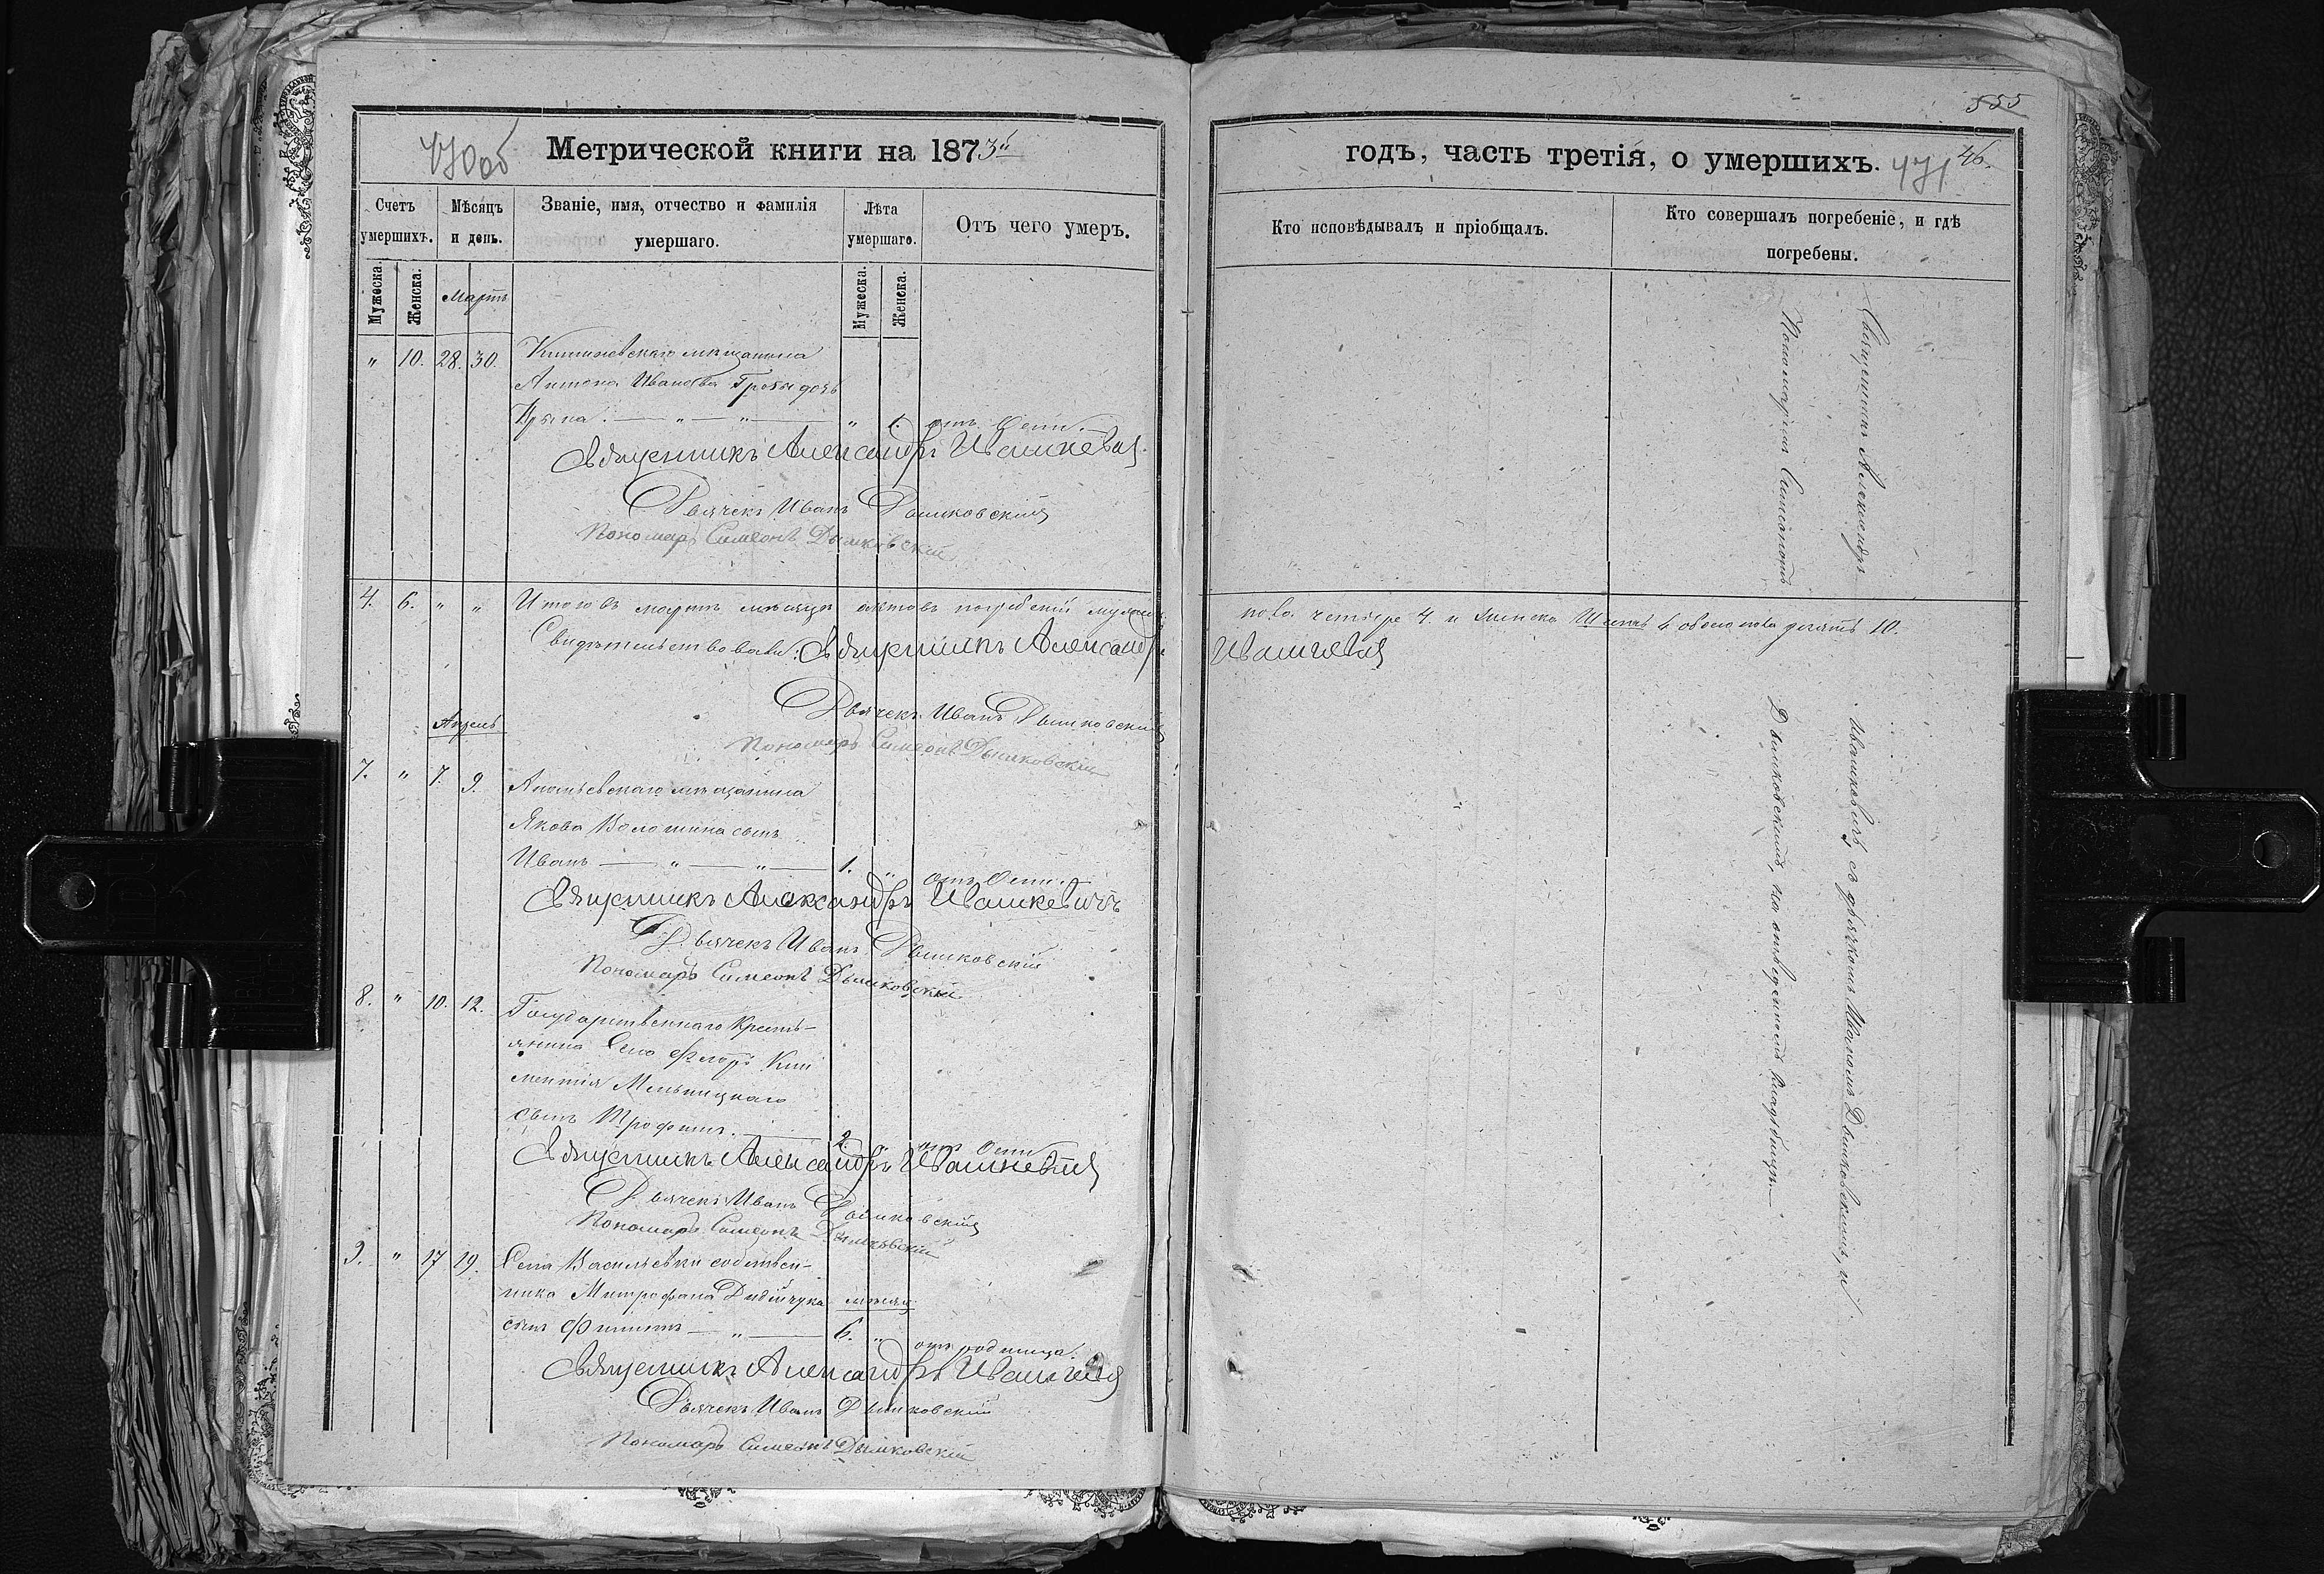 470об
Метрической книги на 1873й
Счетъ умершихъ.
Мѣсяцъ и день.
Званіе, имя, отчество и фамилія умершаго.
Лѣта умершаго.
Отъ чего умеръ.
Мужеска.
Женска.
Мартъ
Мужеска.
Женска.
„ 10. 28. 30. Кишиневскаго мѣщанина
Антона Иванова дочь
„ 1. отъ Оспи.
Священникъ Александръ Ивашкевич
Дьячекъ Иванъ Дышковскій
Пономарь Симеонъ Дышковскій
4. 6. „ „ Итого въ мартѣ мѣсяцѣ актовъ погребеній мужес
Свидѣтельствовали: Священникъ Александръ
Дьячекъ Иванъ Дышковскій
Пономарь Симеонъ Дышковскій
Апрель
7. „ 7. 9. Ананьевскаго мѣщанина
Якова Волошина сынъ
Иванъ — „ — „ — 1. „ отъ Оспи.
Священникъ Александръ Ивашкевичъ
Дьячекъ Иванъ Дышковскій
Пономарь Симеонъ Дышковскій
8. „ 10. 12. Государственнаго Кресть-
янина Села Кли
ментія Мельницкаго
сынъ Трофимъ. — 2. „ отъ Оспи
Священникъ Александръ Ивашкевич
Дьячекъ Иванъ Дышковскій
Пономарь Симеонъ Дышковскій
9. „ 17 19. Села Васильевки собствен-
ника Митрофана мѣсяц
сынъ Филиппъ — „ — 6. „ отъ родимца.
Священникъ Александръ Ивашкевич
Дьячекъ Иванъ Дышковскій
Пономарь Симеонъ Дышковскій
555
годъ, часть третія, о умершихъ. 471 46.
Кто исповѣдывалъ и пріобщалъ.
Кто совершалъ погребеніе, и гдѣ погребены.
Священникъ Александръ
Пономаремъ Симеономъ
пола четыре 4. и женска Шесть 6, обоего пола десять 10.
Ивашкевич
Ивашкевичъ съ дьячкомъ Иваномъ Дышковскимъ, и
Дышковскимъ, на отведенномъ кладбищѣ.—